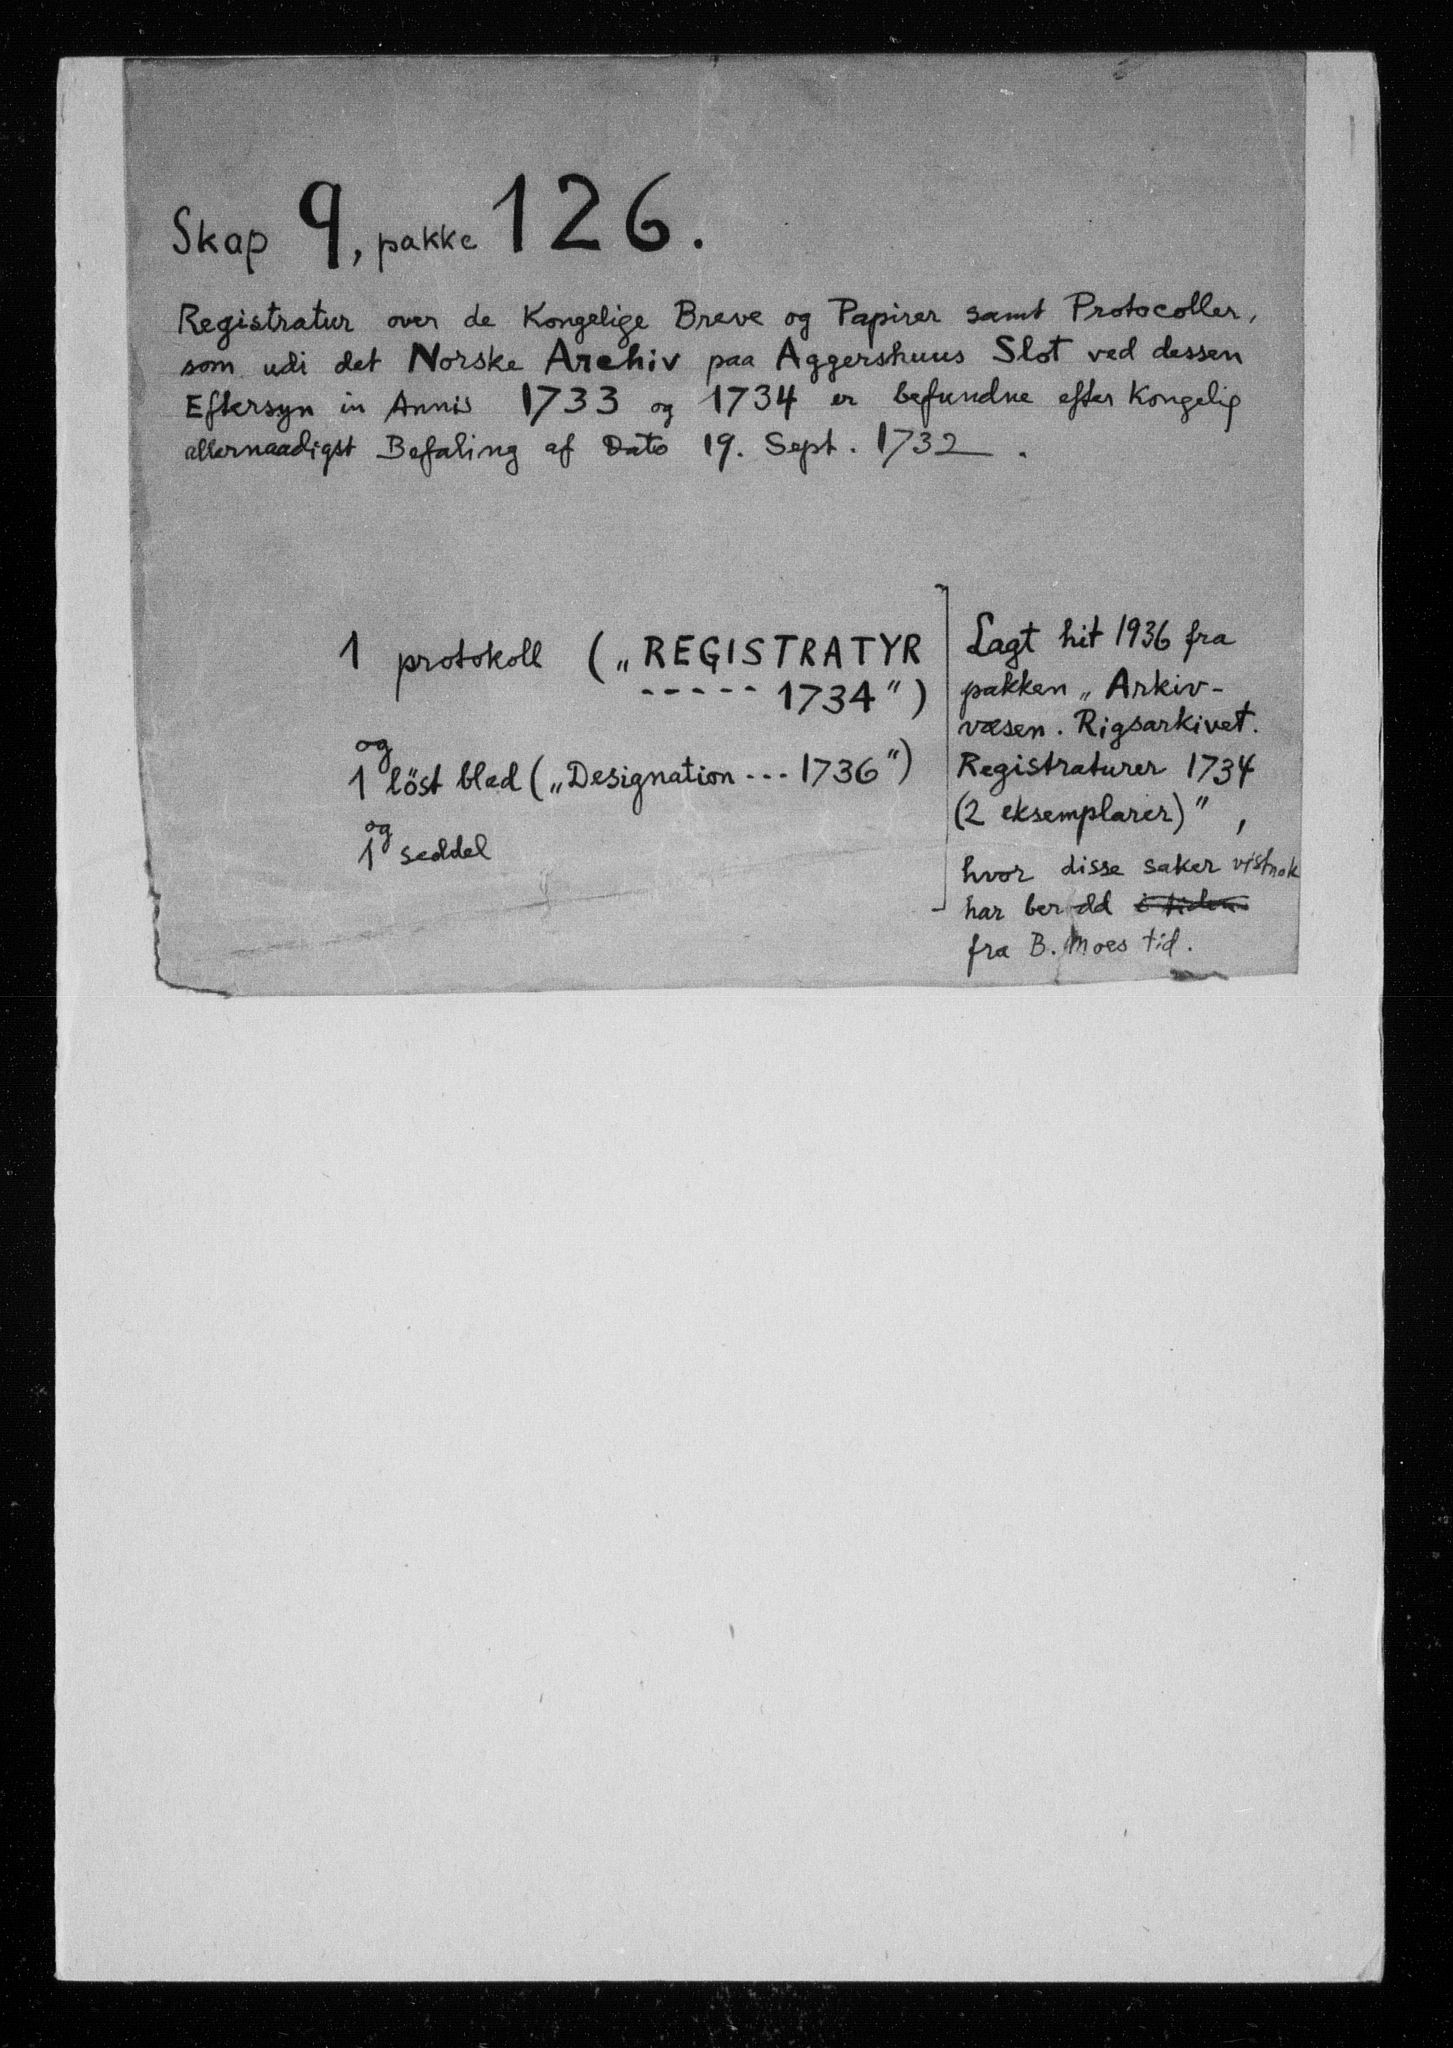 Skap 9, pakke 126.
Registratur over de Kongelige Breve og Papirer samt Protocoller,
som udi det Norske Archiv paa Aggershuus Slot ved dessen
Eftersyn in Annis 1733 og 1734 er befundne efter Kongelig
allernaadigst Befaling af Dato 19. Sept. 1732.
1 protokoll („REGISTRATYR
----- 1734")
og
1 löst blad („Designation --- 1736")
og
1 seddel
Lagt hit 1936 fra
pakken „Arkiv-
væsen. Rigsarkivet.
Registraturer 1734
(2 eksemplarer)",
hvor disse saker vistnok
har ber
fra B. Moes tid.